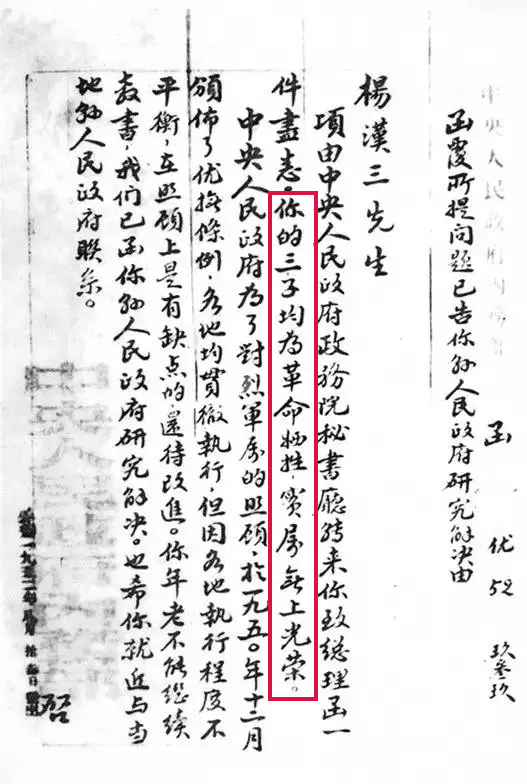 中央人民政府内務部 函 优 52 玖叁玖
函覆所提问题已告你县人民政府研究解决由
楊漢三先生
項由中央人民政府政務院秘書廳转来你致總理函一
件盡志。你的三子均為革命牺牲,實属無上光荣。
中央人民政府為了對烈軍属的照顾,於一九五〇年十二月
頒佈了优撫條例,各地均貫徹執行,但因各地執行程度不
平衡,在照顾上是有缺点的,還待改進。你年老不能继续
教書,我们已函你县人民政府研究解决。也希你就近与当
地县人民政府聯系。
一九五二年 月 拾 日
启